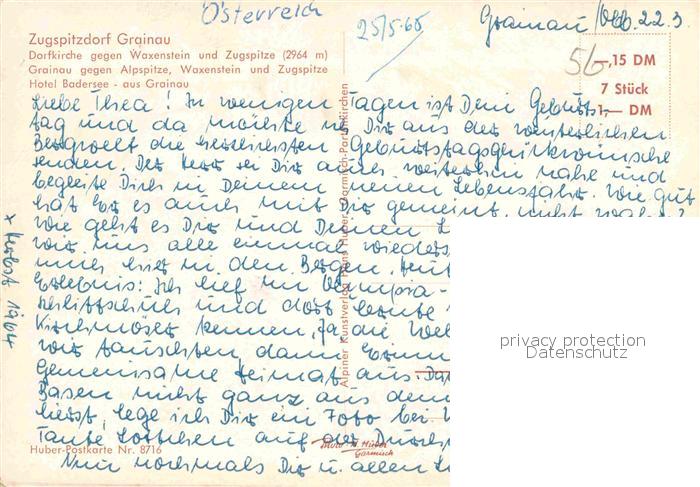 Österreich
25/5.65
Grainau/Obb. 22.3.
Zugspitzdorf Grainau
Dorfkirche gegen Waxenstein und Zugspitze (2964 m)
Grainau gegen Alpspitze, Waxenstein und Zugspitze
Hotel Badersee - aus Grainau
56
—,15 DM
7 Stück
1,— DM
Liebe Thea! In wenigen Tagen ist Dein Geburts-
tag und da möchte ich Dir aus der winterlichen
Bergwelt die herzlichsten Geburtstagsglückwünsche
senden. Der Herr sei Dir auch weiterhin nahe und
begleite Dich in Deinem neuen Lebensjahr. Wie gut
hat Er es auch mit Dir gemeint, nicht wahr?
Wie geht es Dir und Deinen
wir uns alle einmal wieders
mich hier in den Bergen.
Erlebnis: Ich lief im Olympia-
schlittschuh und dort lernte
Kirchmöser kennen, Ja die Wel
wir tauschten dann Erinn
gemeinsame Heimat aus. Da
Basen nicht ganz aus dem
liesst, lege ich Dir ein Foto bei.
Tante Lottchen auf der Durch
Nun nochmals Dir u. allen
x Herbst 1964
Alpiner Kunstverlag Hans Huber, Garmisch-Partenkirchen
Photo H. Huber
Garmisch
Huber-Postkarte Nr. 8716
privacy protection
Datenschutz